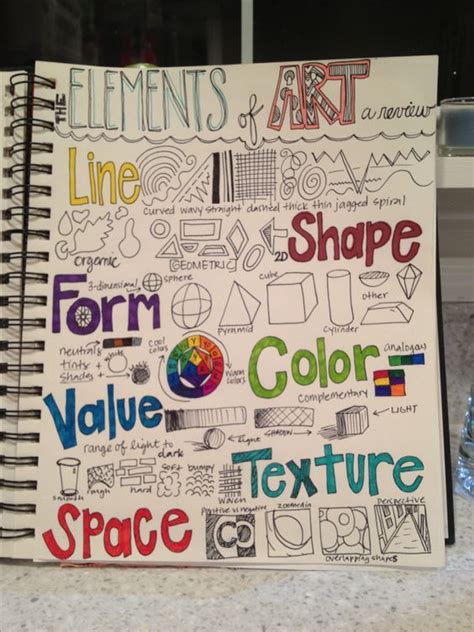 THE ELEMENTS of ART a review
Line
curved wavy straight dashed thick thin jagged spiral
organic
GEOMETRIC
2D
Shape
3-dimensional
sphere
cube
Form
pyramid
cylinder
other
neutrals
tints +
shades
white
cool colors
warm colors
Color
analogous
complementary
Value
range of light to dark
light
SHADOW
LIGHT
smooth
rough
hard
soft
bumpy
woven
Texture
Space
positive vs negative
zoomed in
perspective
overlapping shapes